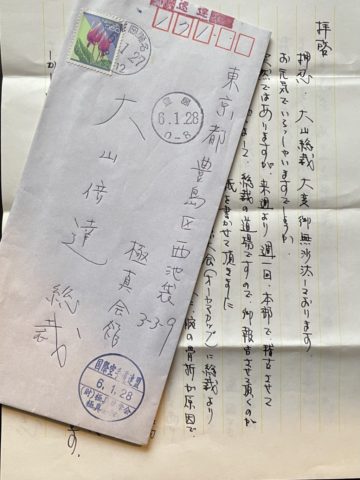 速達
27
12
豊島
6.1.28
0-8
東京都豊島区西池袋
3-3-9
極真会館
大山倍達 総裁
国際空手道連盟
6.1.28
極真
拝啓
押忍、大山総裁 大変御無沙汰しております。
お元気でいらっしゃいますでしょうか
ではありますが、来週より週一回、本部で稽古させて
総裁の道場ですので、御報告させて頂くのが
紙を書かせて頂きました
に総裁より
腕の骨折が原因で
す。